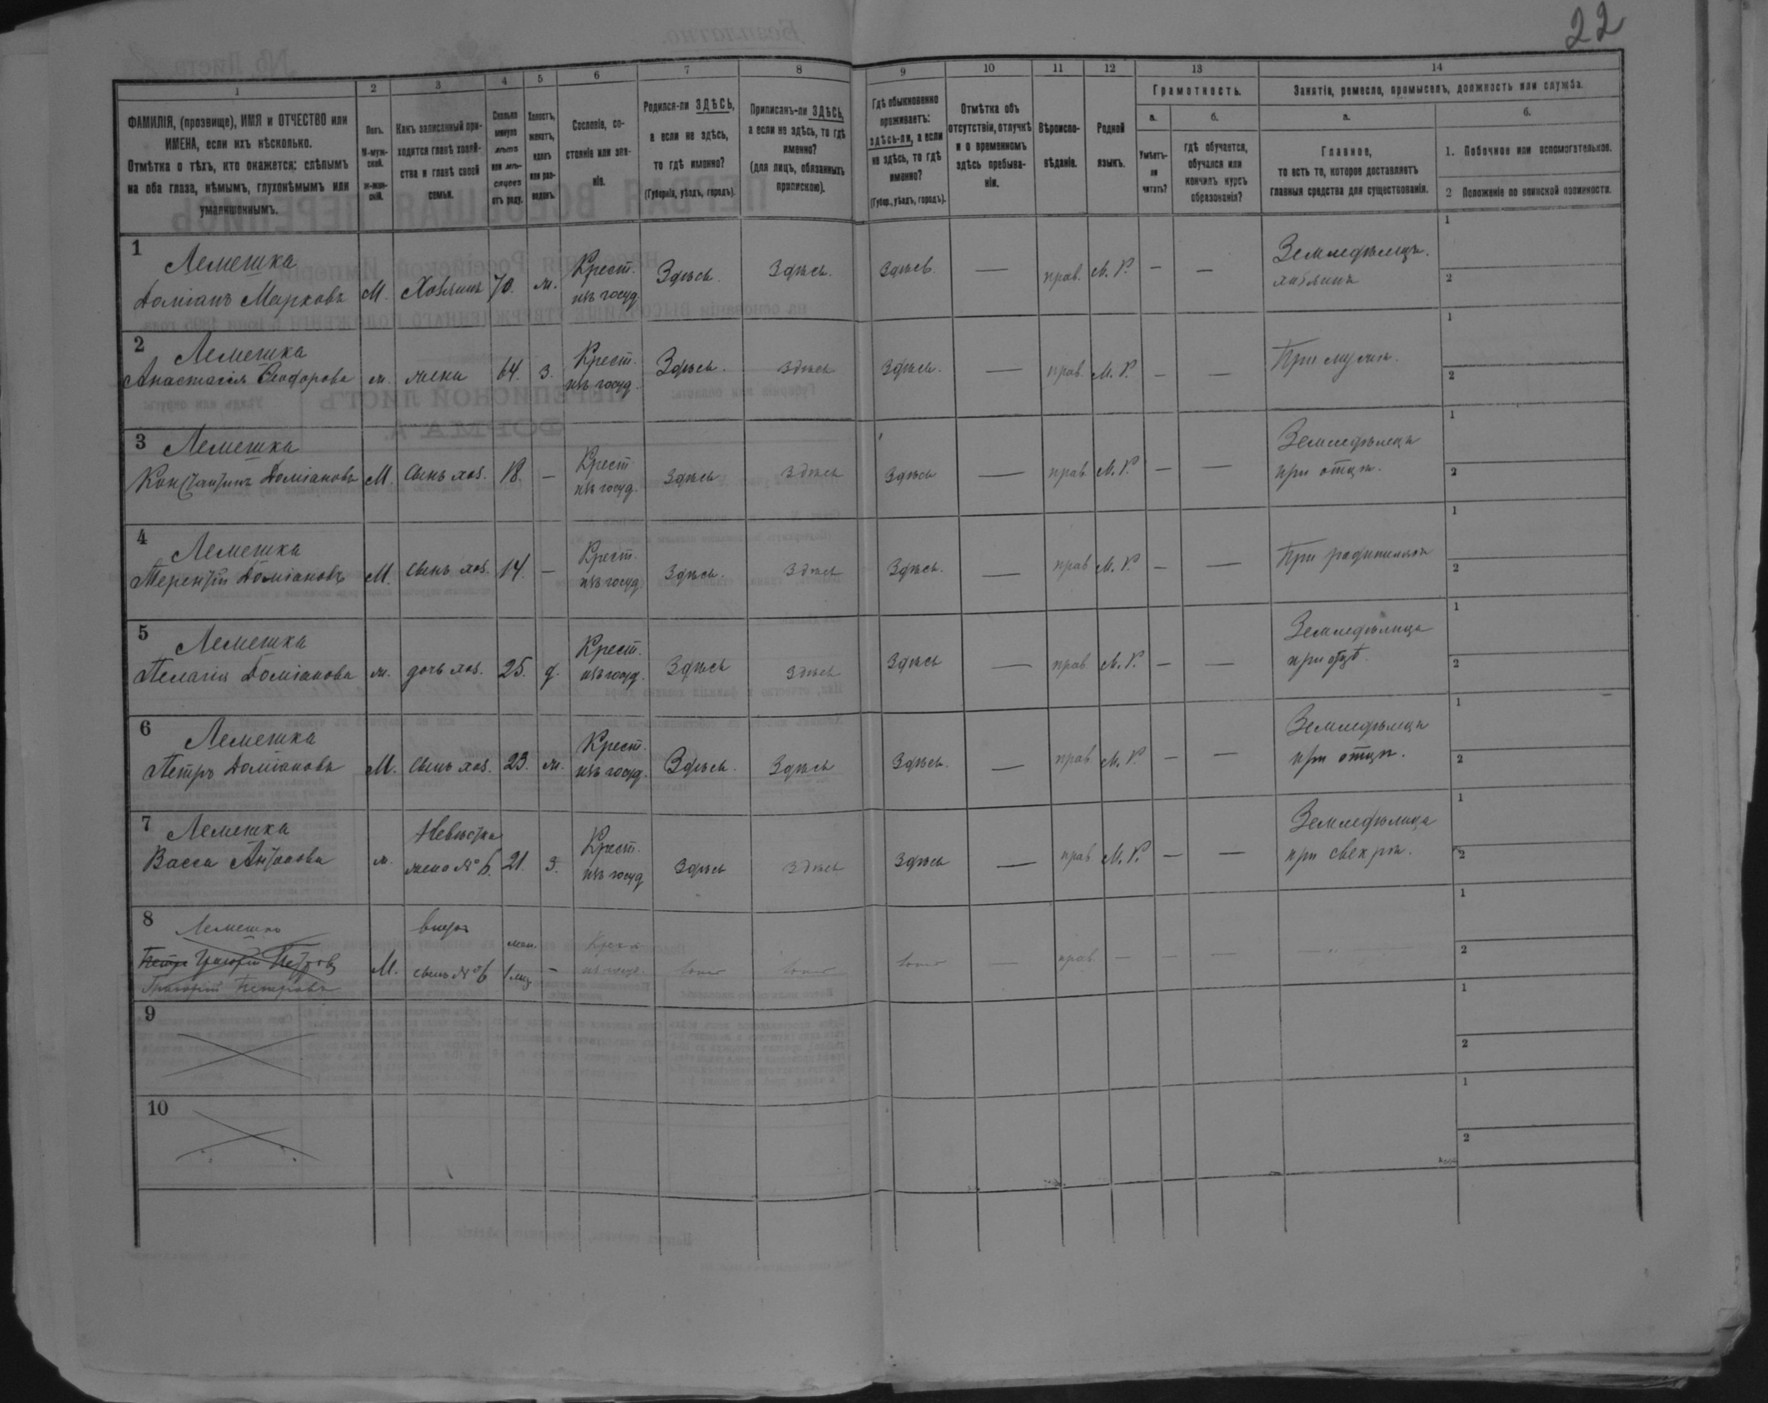 22
1 2 3 4 5 6 7 8 9 10 11 12 13 14
ФАМИЛІЯ, (прозвище), ИМЯ и ОТЧЕСТВО или
ИМЕНА, если ихъ нѣсколько.
Отмѣтка о тѣхъ, кто окажется: слѣпымъ
на оба глаза, нѣмымъ, глухонѣмымъ или
умалишеннымъ.
Полъ.
М-муж-
ской.
ж-жен-
скій.
Какъ записанный при-
ходится главѣ хозяй-
ства и главѣ своей
семьи.
Сколько
минуло
лѣтъ
или мѣ-
сяцевъ
отъ роду.
Холостъ,
женатъ,
вдовъ
или раз-
веденъ.
Сословіе, со-
стояніе или зва-
ніе.
Родился-ли ЗДѢСЬ,
а если не здѣсь,
то гдѣ именно?
(Губернія, уѣздъ, городъ).
Приписанъ-ли ЗДѢСЬ,
а если не здѣсь, то гдѣ
именно?
(для лицъ, обязанныхъ
припискою).
Гдѣ обыкновенно
проживаетъ:
здѣсь-ли, а если
не здѣсь, то гдѣ
именно?
(Губер., уѣздъ, городъ).
Отмѣтка объ
отсутствіи, отлучкѣ
и о временномъ
здѣсь пребыва-
ніи.
Вѣроиспо-
вѣданіе.
Родной
языкъ.
Грамотность.
а.
Умѣетъ-
ли
читать?
б.
гдѣ обучается,
обучался или
кончилъ курсъ
образованія?
Занятіе, ремесло, промыселъ, должность или служба.
а.
Главное,
то есть то, которое доставляетъ
главныя средства для существованія.
б.
1. Побочное или вспомогательное.
2 Положеніе по воинской повинности.
1
Лемешка
Доміанъ Марковъ М. Хозяинъ 70. ж. Крест. изъ госуд. Здѣсь. Здѣсь. Здѣсь — прав. М. Р. — — Земледѣлецъ. хозяинъ 1 2
2
Лемешка
Анастасія Ѳеодорова ж. жена 64. З. Крест. изъ госуд. Здѣсь. Здѣсь Здѣсь. — прав. М. Р. — — При мужѣ. 1 2
3
Лемешка
Константинъ Доміановъ М. Сынъ хоз. 18. — Крест изъ госуд. Здѣсь Здѣсь Здѣсь — прав. М. Р. — — Земледѣлецъ при отцѣ. 1 2
4
Лемешка
Терентій Доміановъ М. Сынъ хоз. 14. — Крест. изъ госуд Здѣсь. Здѣсь Здѣсь. — прав М. Р. — — При родителяхъ 1 2
5
Лемешка
Пелагія Доміанова ж. дочь хоз. 25. д. Крест. изъ госуд. Здѣсь Здѣсь Здѣсь — прав М. Р. — — Земледѣлица при отцѣ. 1 2
6
Лемешка
Петръ Доміановъ М. Сынъ хоз. 23. ж. Крест. изъ госуд. Здѣсь. Здѣсь Здѣсь. — прав М. Р. — — Земледѣлецъ при отцѣ. 1 2
7
Лемешка
Васса Антонова ж. Невѣстка жена № 6. 21. З. Крест. изъ госуд Здѣсь Здѣсь Здѣсь — прав М. Р. — — Земледѣлица при свекрѣ. 1 2
8
Лемешка
Петръ Григорій Петровъ
Григорій Петровъ М. внукъ сынъ № 6 мен. 1 мѣс — Крест изъ госуд. — прав — — — 1 2
9 1 2
10 1 2